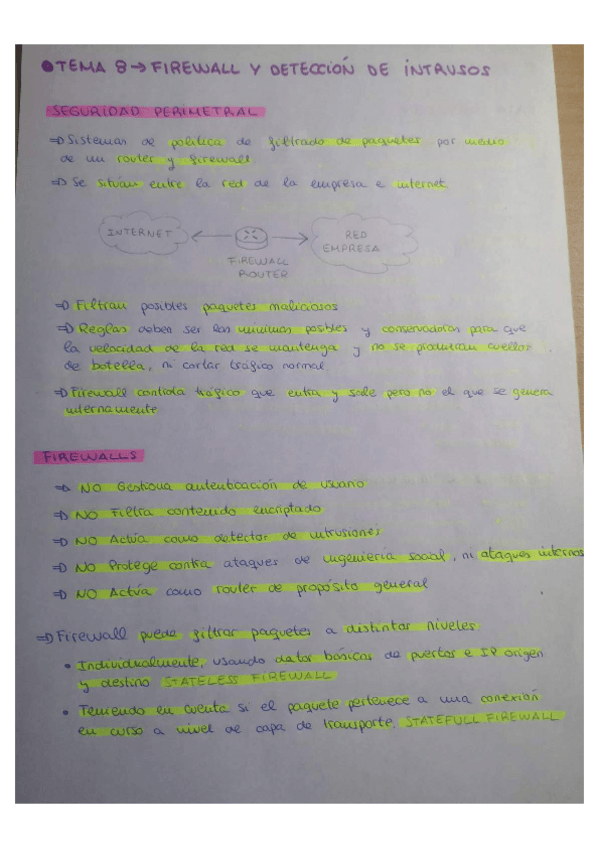 • TEMA 8 → FIREWALL Y DETECCIÓN DE INTRUSOS
SEGURIDAD PERIMETRAL
⇒ Sistemas de política de filtrado de paquetes por medio
de un router y firewall
⇒ Se sitúan entre la red de la empresa e internet
INTERNET
RED
EMPRESA
FIREWALL
ROUTER
⇒ Filtran posibles paquetes maliciosos
⇒ Reglas deben ser las mínimas posibles y conservadoras para que
la velocidad de la red se mantenga y no se produzcan cuellos
de botella, ni cortar tráfico normal
⇒ Firewall controla tráfico que entra y sale pero no el que se genera
internamente
FIREWALLS
⇒ NO Gestiona autenticación de usuario
⇒ NO Filtra contenido encriptado
⇒ NO Actúa como detector de intrusiones
⇒ NO Protege contra ataques de ingeniería social, ni ataques internos
⇒ NO Actúa como router de propósito general
⇒ Firewall puede filtrar paquetes a distintos niveles:
• Individualmente, usando datos básicos de puertos e IP origen
y destino STATELESS FIREWALL
• Teniendo en cuenta si el paquete pertenece a una conexión
en curso a nivel de capa de transporte. STATEFULL FIREWALL